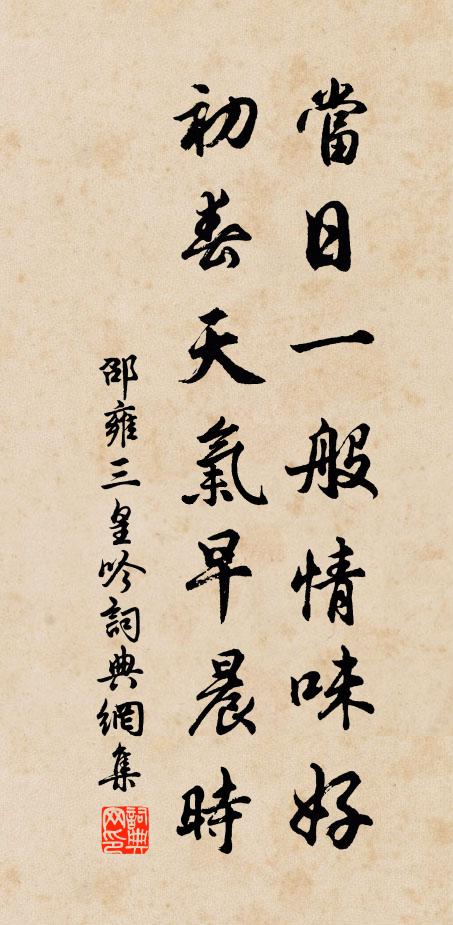 當日一般情味好
初春天氣早晨時
邵雍三皇吟詞典網集
詞典
网印